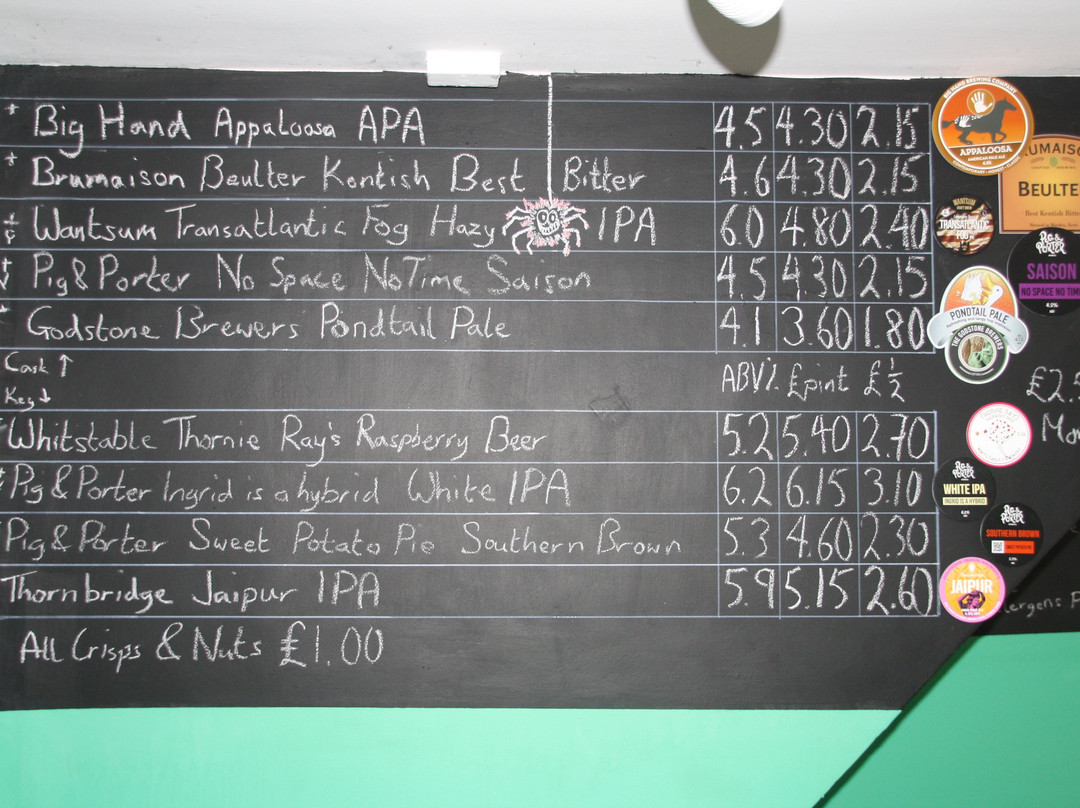 Big Hand Appaloosa APA 4.5 4.30 2.15
Brumaison Beulter Kentish Best Bitter 4.6 4.30 2.15
Wantsum Transatlantic Fog Hazy IPA 6.0 4.80 2.40
Pig & Porter No Space No Time Saison 4.5 4.30 2.15
Godstone Brewers Pondtail Pale 4.1 3.60 1.80
Cask ↑ ABV% £pint £½
Keg ↓
Whitstable Thornie Ray's Raspberry Beer 5.2 5.40 2.70
Pig & Porter Ingrid is a hybrid White IPA 6.2 6.15 3.10
Pig & Porter Sweet Potato Pie Southern Brown 5.3 4.60 2.30
Thornbridge Jaipur IPA 5.9 5.15 2.60
All Crisps & Nuts £1.00
BIG HAND BREWING COMPANY
APPALOOSA
AMERICAN PALE ALE
BEULTE
Best Kentish Bitte
WANTSUM
TRANSATLANTIC
FOG
PIG & PORTER
SAISON
NO SPACE NO TIM
PONDTAIL PALE
THE GODSTONE BREWERS
£2.5
Mo
PIG & PORTER
WHITE IPA
INGRID IS A HYBRID
PIG & PORTER
SOUTHERN BROWN
JAIPUR
lergens